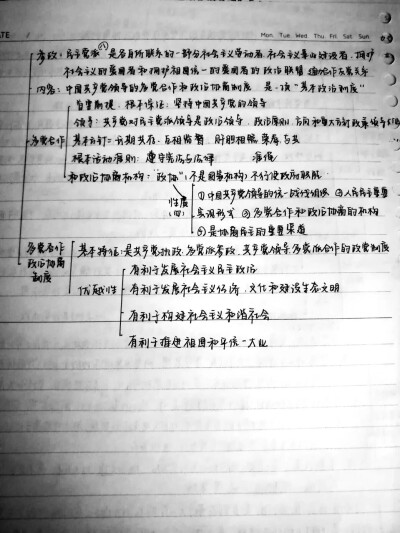 DATE
Mon Tue Wed Thu Fri Sat Sun
参政：民主党派①是各自所联系的一部分社会主义劳动者、社会主义事业建设者、拥护
社会主义的爱国者和拥护祖国统一的爱国者的政治联盟
内容：中国共产党领导的多党合作和政治协商制度 是一项"基本政治制度"
首要前提、根本保证：坚持中国共产党的领导
领导：共产党对民主党派领导是政治领导，政治原则、方向和重大方针政策领导
多党合作
基本方针：长期共存、互相监督、肝胆相照、荣辱与共
根本活动准则：遵守宪法与法律
和政治协商机构："政协"：不是国家机构，不行使政府职能
性质
(四)
①中国共产党领导的统一战线组织 ②人民民主重要
实现形式 ③多党合作和政治协商的机构
④是协商民主的重要渠道
多党合作
政治协商
制度
基本特征：是共产党执政、多党派参政，共产党领导、多党派合作的政党制度
优越性
有利于发展社会主义民主政治
有利于发展社会主义经济、文化和建设生态文明
有利于构建社会主义和谐社会
有利于推进祖国和平统一大业